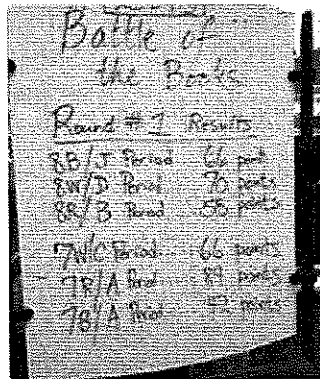 Battle of
the Books
Round # 1 Results
8B/J Period 66 points
8W/D Period 76 points
8R/B Period 58 points
7W/C Period 66 points
7R/A Period 87 points
7B/A Period points